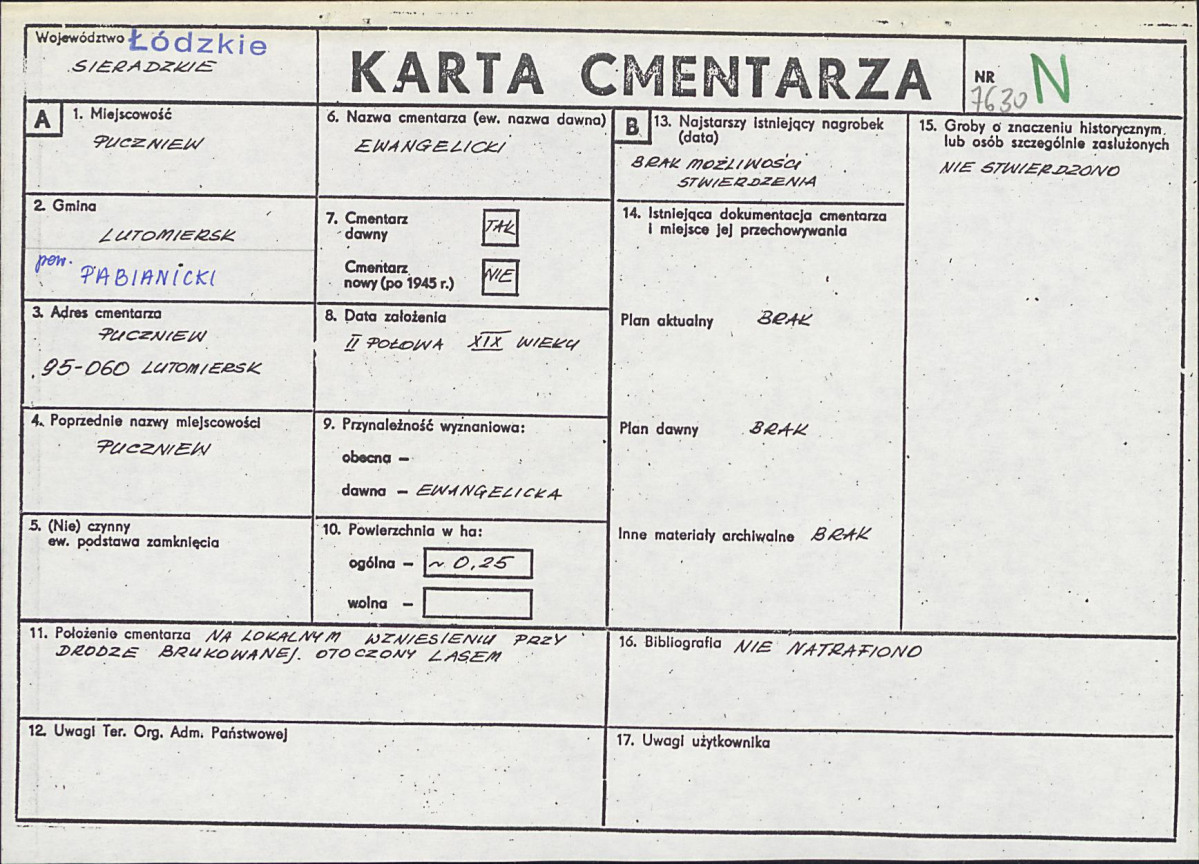 Województwo Łódzkie
SIERADZKIE
KARTA CMENTARZA
NR
7630 N
A
1. Miejscowość
PUCZNIEW
2. Gmina
LUTOMIERSK
pow. PABIANICKI
3. Adres cmentarza
PUCZNIEW
95-060 LUTOMIERSK
4. Poprzednie nazwy miejscowości
PUCZNIEW
5. (Nie) czynny
ew. podstawa zamknięcia
6. Nazwa cmentarza (ew. nazwa dawna)
EWANGELICKI
7. Cmentarz
dawny TAK
Cmentarz
nowy (po 1945 r.) NIE
8. Data założenia
II POŁOWA XIX WIEKU
9. Przynależność wyznaniowa:
obecna –
dawna – EWANGELICKA
10. Powierzchnia w ha:
ogólna – ~ 0,25
wolna –
11. Położenie cmentarza NA LOKALNYM WZNIESIENIU PRZY
DRODZE BRUKOWANEJ. OTOCZONY LASEM
12. Uwagi Ter. Org. Adm. Państwowej
B
13. Najstarszy istniejący nagrobek
(data)
BRAK MOŻLIWOŚCI
STWIERDZENIA
14. Istniejąca dokumentacja cmentarza
i miejsce jej przechowywania
Plan aktualny BRAK
Plan dawny BRAK
Inne materiały archiwalne BRAK
15. Groby o znaczeniu historycznym
lub osób szczególnie zasłużonych
NIE STWIERDZONO
16. Bibliografia NIE NATRAFIONO
17. Uwagi użytkownika